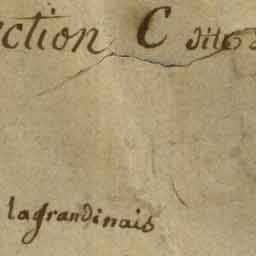 ection C dite
lagrandinais